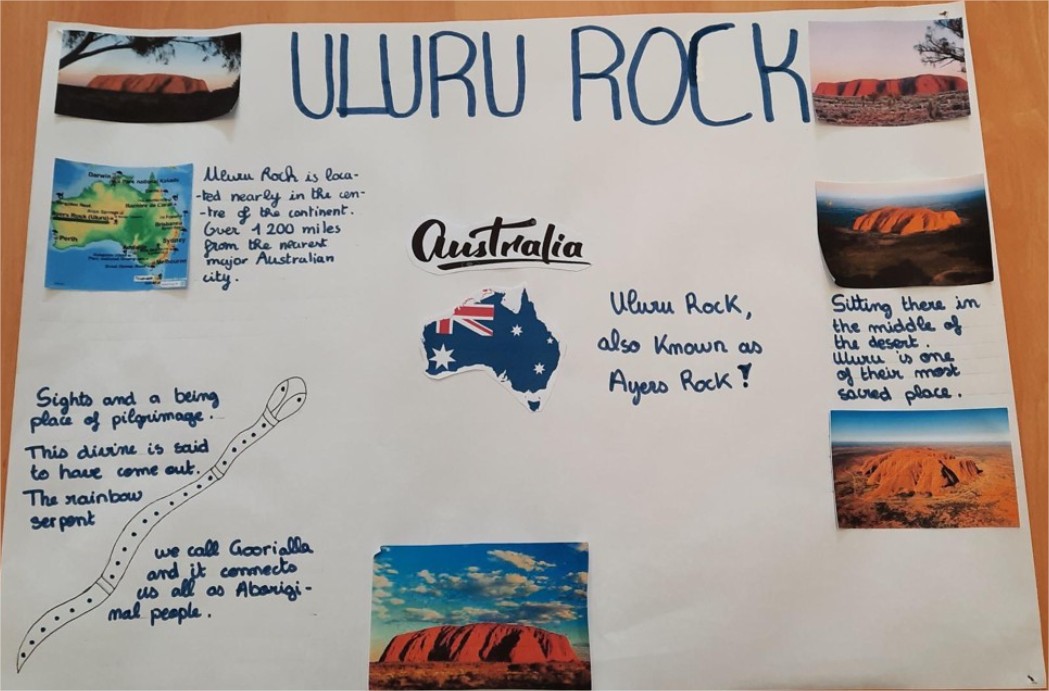 ULURU ROCK
Uluru Rock is loca-
-ted nearly in the cen-
-tre of the continent.
Over 1 200 miles
from the nearest
major Australian
city.
Darwin
Perth
Sydney
Australia
Uluru Rock,
also Known as
Ayers Rock!
Sitting there in
the middle of
the desert.
Uluru is one
of their most
sacred place.
Sights and a being
place of pilgrimage.
This divine is said
to have come out.
The rainbow
serpent
we call Goorialla
and it connects
us all as Aborigi-
nal people.